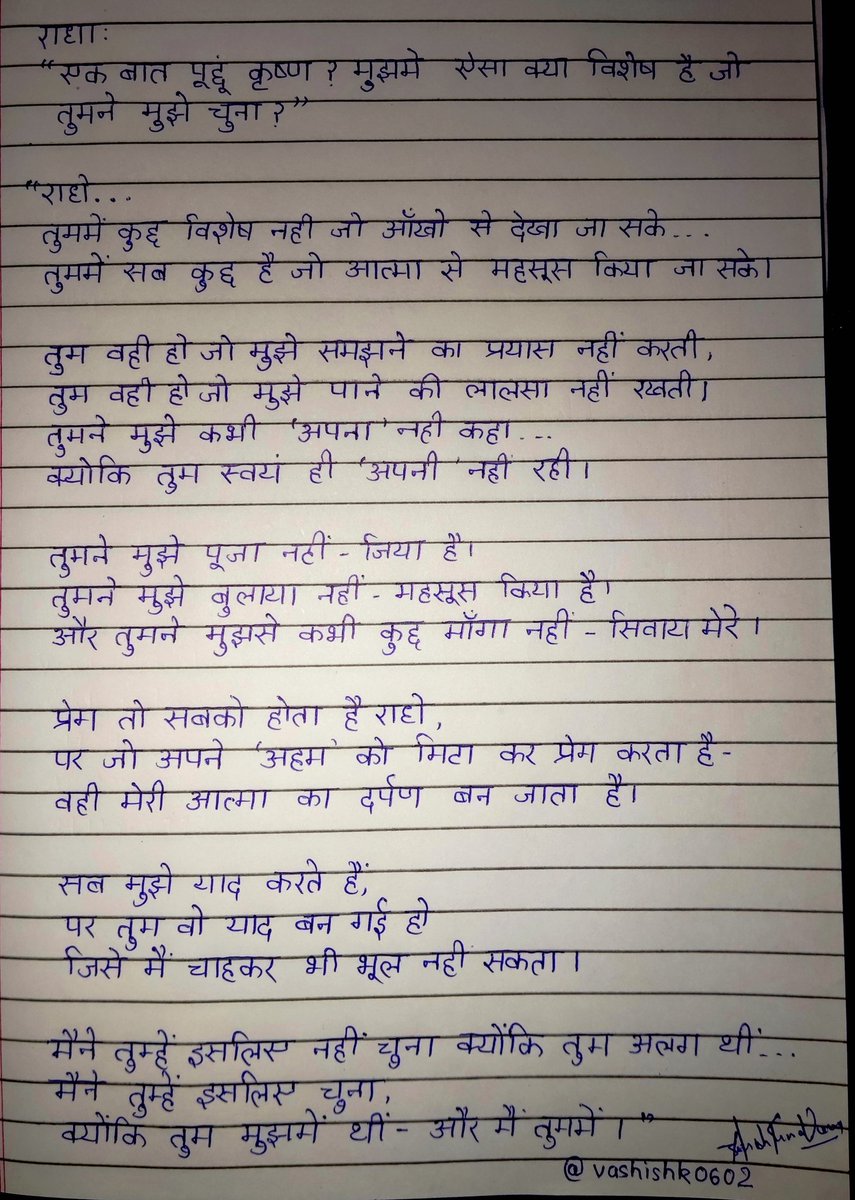 राधाः
“एक बात पूछूं कृष्ण? मुझमे ऐसा क्या विशेष है जो
तुमने मुझे चुना?”
“राधे...
तुममें कुछ विशेष नही जो आँखो से देखा जा सके...
तुममें सब कुछ है जो आत्मा से महसूस किया जा सके।
तुम वही हो जो मुझे समझने का प्रयास नहीं करती,
तुम वही हो जो मुझे पाने की लालसा नहीं रखती।
तुमने मुझे कभी ‘अपना’ नही कहा...
क्योकि तुम स्वयं ही ‘अपनी’ नहीं रही।
तुमने मुझे पूजा नहीं - जिया है।
तुमने मुझे बुलाया नहीं - महसूस किया है।
और तुमने मुझसे कभी कुछ माँगा नहीं - सिवाय मेरे।
प्रेम तो सबको होता है राधे,
पर जो अपने ‘अहम’ को मिटा कर प्रेम करता है -
वही मेरी आत्मा का दर्पण बन जाता है।
सब मुझे याद करते हैं,
पर तुम वो याद बन गई हो
जिसे मैं चाहकर भी भूल नही सकता।
मैने तुम्हें इसलिए नहीं चुना क्योंकि तुम अलग थीं...
मैने तुम्हें इसलिए चुना,
क्योंकि तुम मुझमें थीं - और मैं तुममें।”
@vashishk0602